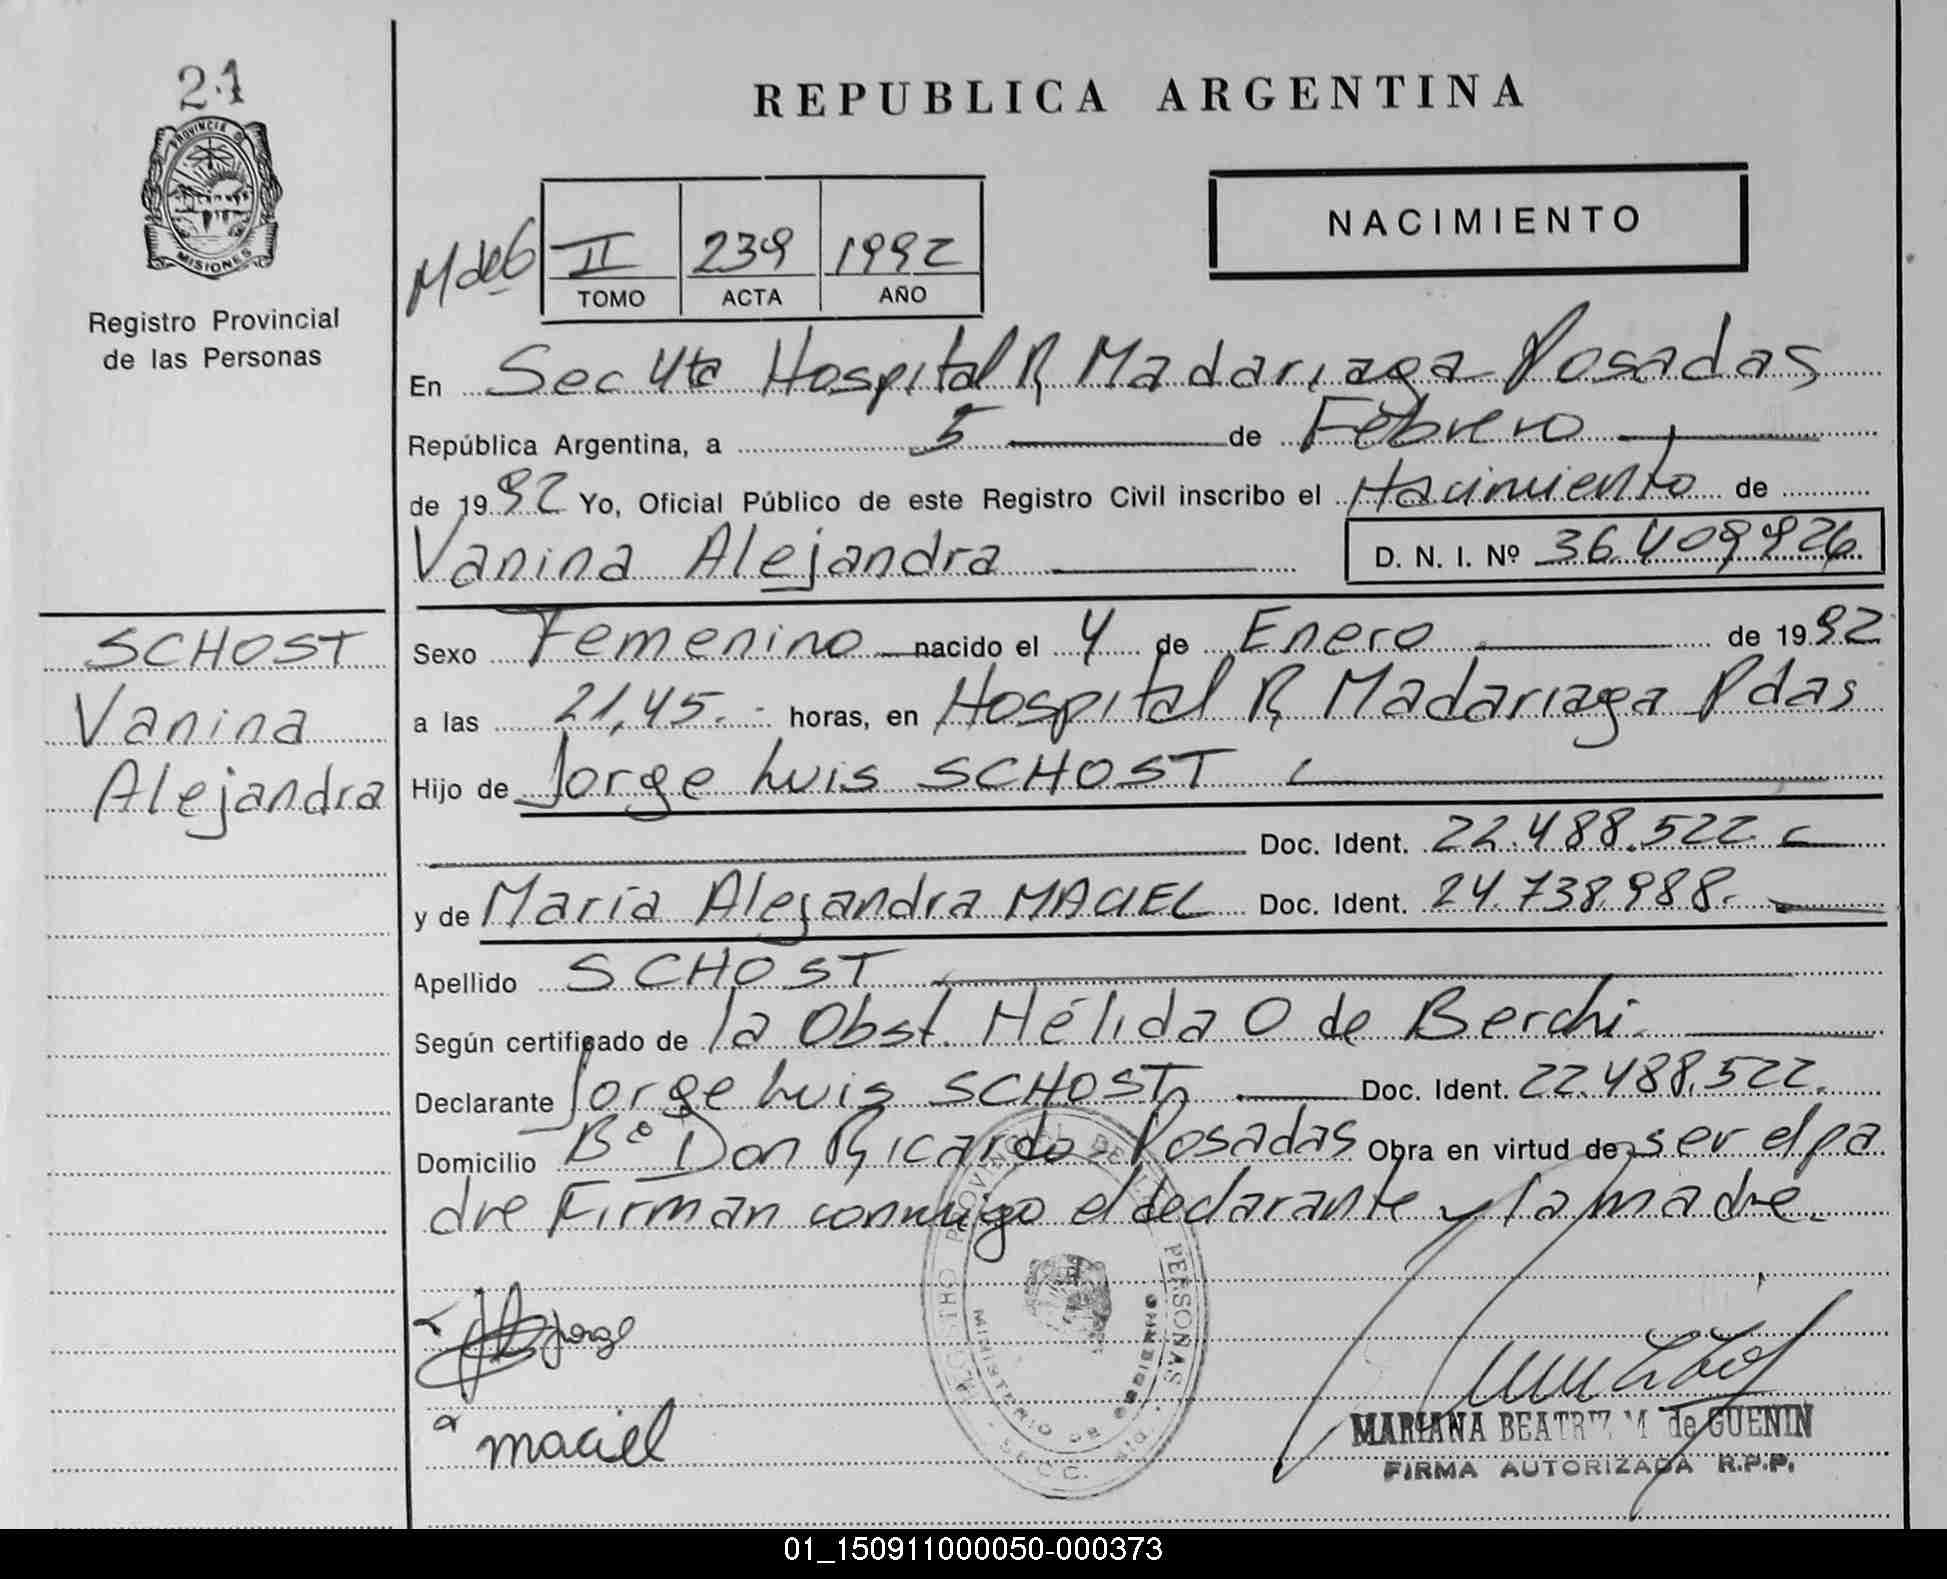 21
PROVINCIA DE
MISIONES
Registro Provincial
de las Personas
REPUBLICA ARGENTINA
NACIMIENTO
M de G
II 239 1992
TOMO ACTA AÑO
En Sec 4ta Hospital R Madariaga Posadas
República Argentina, a 5 de Febrero
de 1992 Yo, Oficial Público de este Registro Civil inscribo el Nacimiento de
Vanina Alejandra D. N. I. Nº 36.409926
SCHOST
Vanina
Alejandra
Sexo Femenino nacido el 4 de Enero de 1992
a las 21,45.- horas, en Hospital R Madariaga Pdas
Hijo de Jorge Luis SCHOST
Doc. Ident. 22.488.522
y de María Alejandra MACIEL Doc. Ident. 24.738.988.
Apellido SCHOST
Según certificado de la Obst. Hélida O de Berchi.
Declarante Jorge Luis SCHOST Doc. Ident. 22.488.522.
Domicilio Bº Don Ricardo Posadas Obra en virtud de ser el pa
dre Firman conmigo el declarante y la madre.
PROVINCIAL DE LAS PERSONAS
MINISTERIO DE GOBIERNO
Jorge
maciel
MARIANA BEATRIZ M de GUENIN
FIRMA AUTORIZADA R.P.P.
01_150911000050-000373